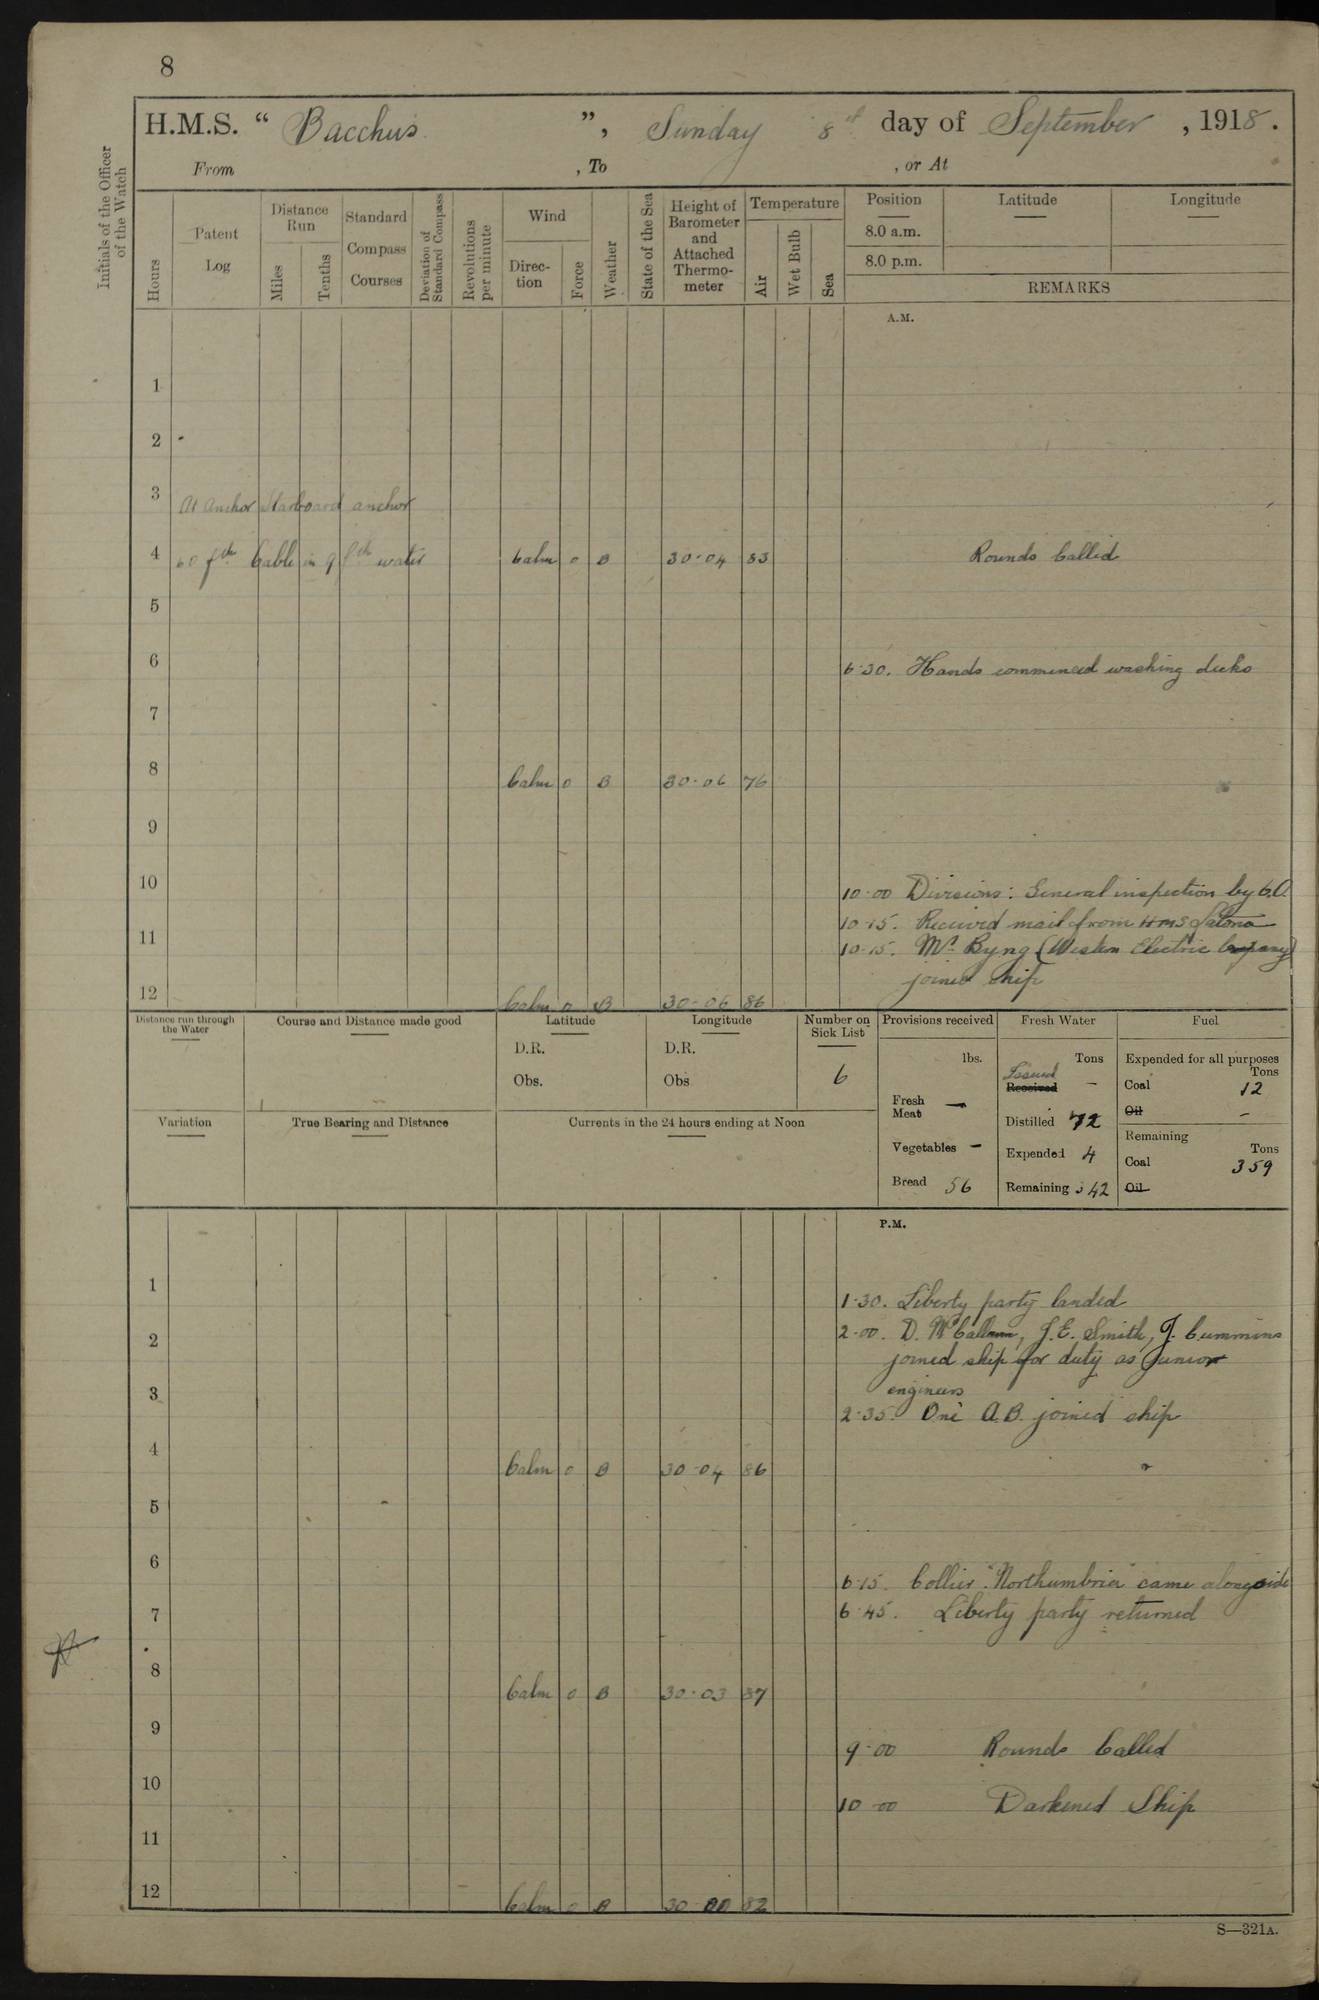 8
H.M.S. “ Bacchus ”, Sunday 8th day of September , 1918.
From , To , or At
Initials of the Officer of the Watch
Hours
Patent Log
Distance Run
Miles
Tenths
Standard Compass Courses
Deviation of Standard Compass
Revolutions per minute
Wind
Direc-tion
Force
Weather
State of the Sea
Height of Barometer and Attached Thermo-meter
Temperature
Air
Wet Bulb
Sea
Position
8.0 a.m.
8.0 p.m.
Latitude
Longitude
REMARKS
A.M.
1
2
3 At Anchor Starboard anchor
4 60 fth Cable in 9 fth water Calm 0 B 30·04 83 Rounds Called
5
6 6·30. Hands commenced washing decks
7
8 Calm 0 B 30·06 76
9
10 10·00 Divisions: General inspection by C.O.
10·15. Received mail from HMS Latona
11 10·15. Mr. Byng (Western Electric Company)
joined ship
12 Calm 0 B 30·06 86
Distance run through the Water
Course and Distance made good
Latitude
D.R.
Obs.
Longitude
D.R.
Obs
Number on Sick List
6
Variation
True Bearing and Distance
Currents in the 24 hours ending at Noon
Provisions received
lbs.
Fresh Meat —
Vegetables –
Bread 56
Fresh Water
Tons
Issued
Received –
Distilled 72
Expended 4
Remaining 342
Fuel
Expended for all purposes
Tons
Coal 12
Oil –
Remaining
Tons
Coal 359
Oil
P.M.
1 1·30. Liberty party landed
2 2·00. D. McCallum, J.E. Smith, J. Cummins
joined ship for duty as Junior
3 engineers
2·35. One A.B. joined ship
4 Calm 0 B 30·04 86
5
6 6·15. Collier "Northumbria" came alongside
7 6·45. Liberty party returned
8 Calm 0 B 30·03 87
9 9·00 Rounds Called
10 10·00 Darkened Ship
11
12 Calm 0 B 30·00 82
S—321A.